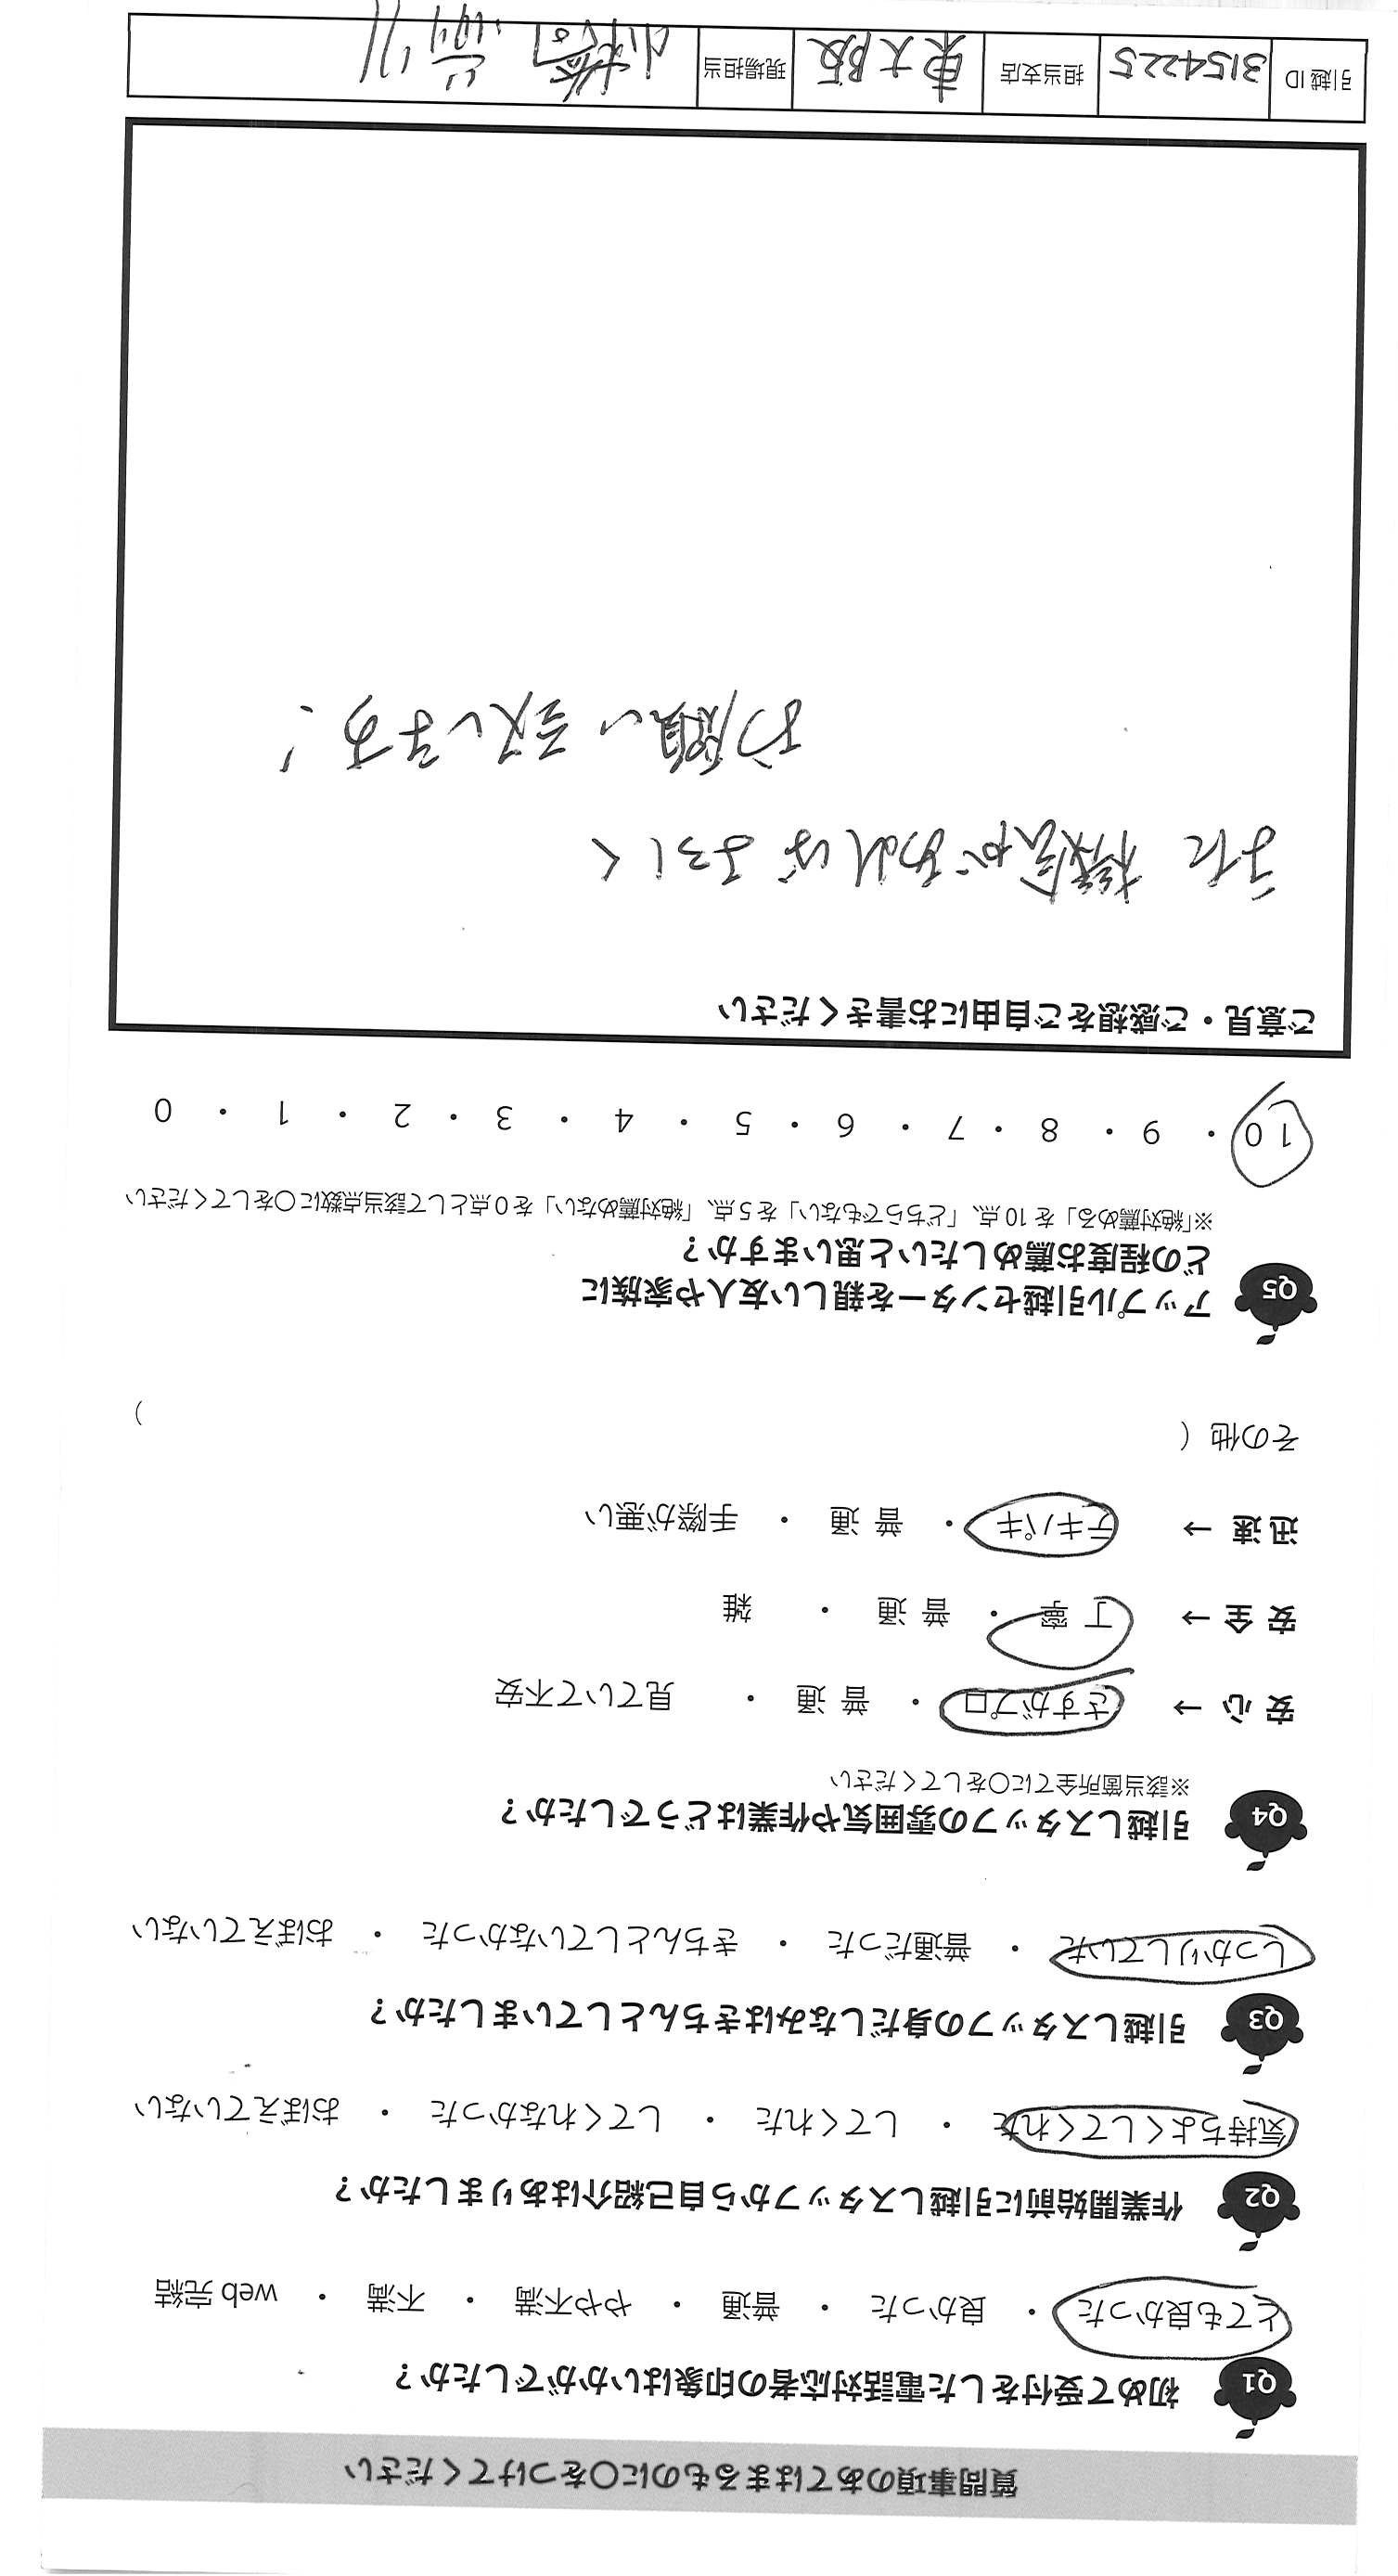 質問事項のあてはまるものに○をつけてください
Q1 初めて受付をした電話対応者の印象はいかがでしたか？
とても良かった ・ 良かった ・ 普通 ・ やや不満 ・ 不満 ・ web 完結
Q2 作業開始前に引越しスタッフから自己紹介はありましたか？
気持ちよくしてくれた ・ してくれた ・ してくれなかった ・ おぼえていない
Q3 引越しスタッフの身だしなみはきちんとしていましたか？
しっかりしていた ・ 普通だった ・ きちんとしていなかった ・ おぼえていない
Q4 引越しスタッフの雰囲気や作業はどうでしたか？
※該当箇所全てに○をしてください
安心 → さすがプロ ・ 普通 ・ 見ていて不安
安全 → 丁寧 ・ 普通 ・ 雑
迅速 → テキパキ ・ 普通 ・ 手際が悪い
その他（ ）
Q5 アップル引越センターを親しい友人や家族に
どの程度お薦めしたいと思いますか？
※「絶対薦める」を 10 点、「どちらでもない」を 5 点、「絶対薦めない」を 0 点として該当点数に○をしてください
10 ・ 9 ・ 8 ・ 7 ・ 6 ・ 5 ・ 4 ・ 3 ・ 2 ・ 1 ・ 0
ご意見・ご感想をご自由にお書きください
また 機会が あれば よろしく
お願い 致します！
引越 ID 3154225 担当支店 東大阪 現場担当